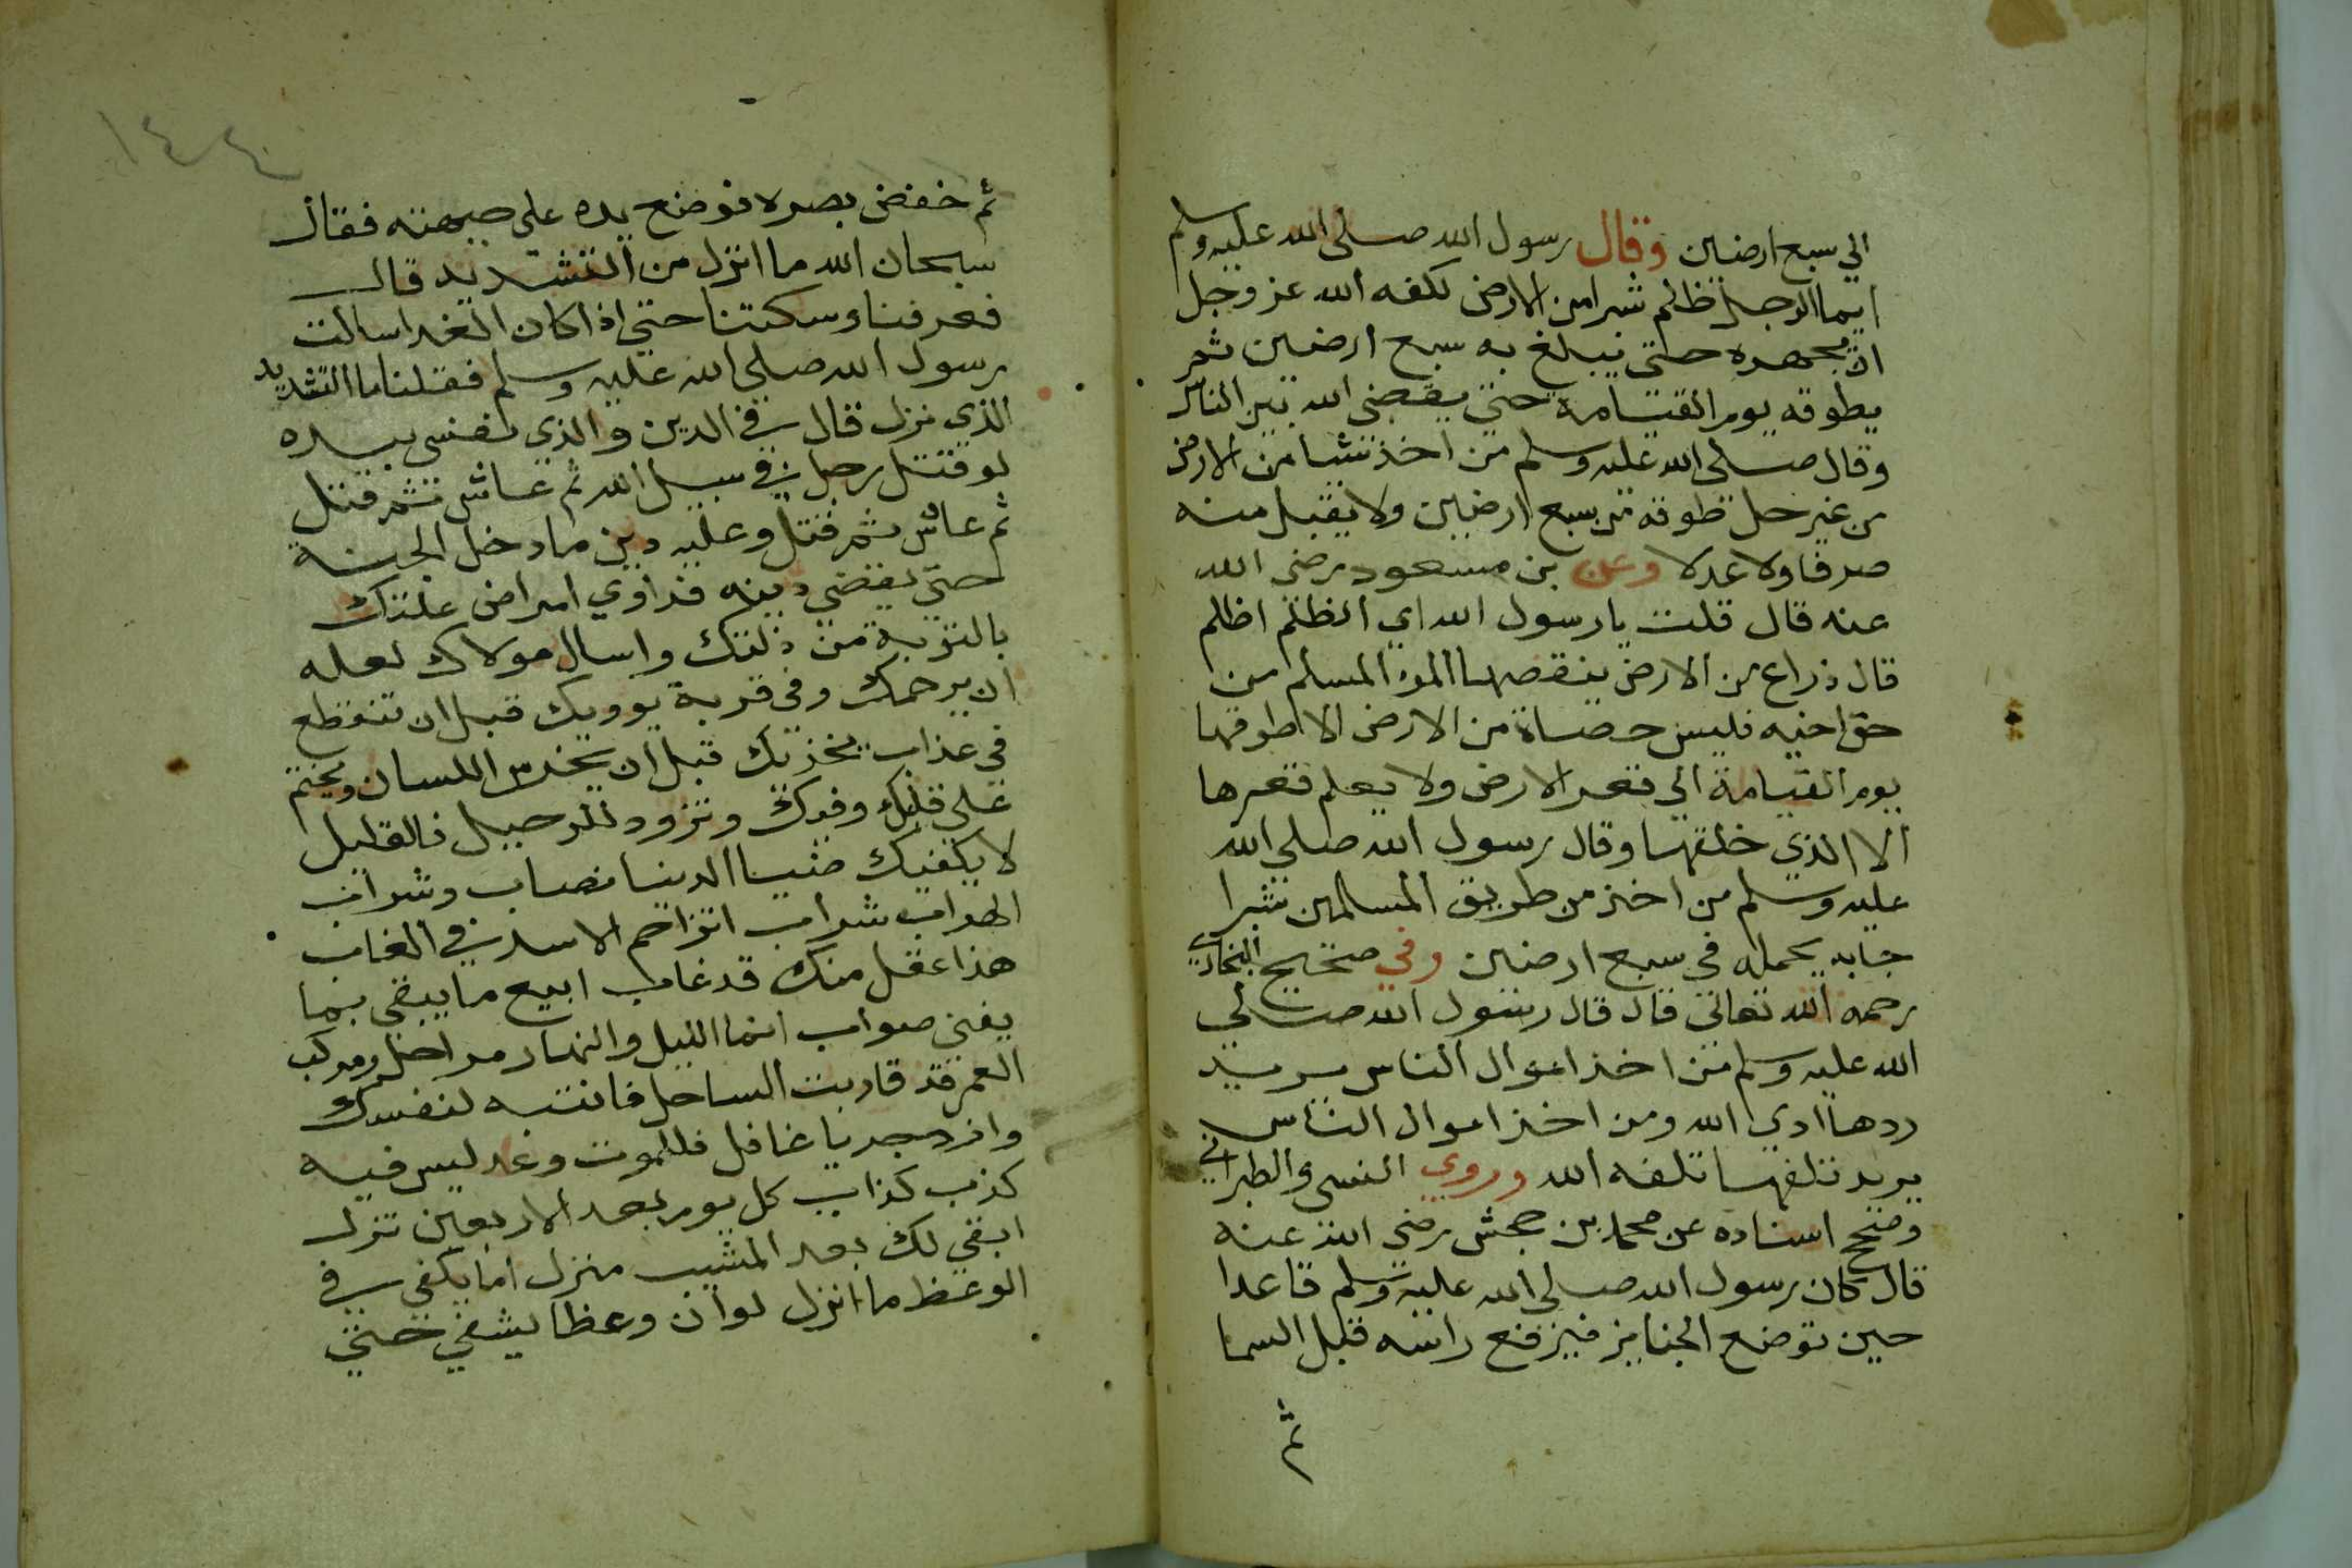 الي سبع ارضين وقال رسول الله صلى الله عليه وسلم
ايما الرجل ظلم شبرا من الارض كلفه الله عز وجل
ان يحمره حتى يبلغ به سبع ارضين ثم
يطوقه يوم القيامة حتى يقضى الله بين الناس
وقال صلى الله عليه وسلم من اخذ شيا من الارض
من غير حل طوقه من سبع ارضين ولا يقبل منه
صرفا ولا عدلا وعن بن مسعود رضى الله
عنه قال قلت يا رسول الله اي الظلم اظلم
قال ذراع من الارض ينقصها المرء المسلم من
حق اخيه فليس حصاة من الارض الا طوقها
يوم القيامة الي قعر الارض ولا يعلم قعرها
الا الذي خلقها وقال رسول الله صلى الله
عليه وسلم من اخذ من طريق المسلمين شبرا
جا به يحمله في سبع ارضين وفي صحيح البخاري
رحمه الله تعالى قال قال رسول الله صلي
الله عليه وسلم من اخذ اموال الناس يريد
ردها ادي الله ومن اخذ اموال الناس
يريد تلفها تلفه الله وروي النسى والطبراني
وصحح اسناده عن محمد بن جحش رضى الله عنه
قال كان رسول الله صلى الله عليه وسلم قاعدا
حين توضع الجنايز فيرفع راسه قبل السما
ثم
١٤٤
ثم خفض بصره فوضع يده على جبهته فقال
سبحان الله ما انزل من التشديد قال
فعرفنا وسكتنا حتى اذا كان الغد اسالت
رسول الله صلى الله عليه وسلم فقلنا ما التشديد
الذي نزل قال في الدين والذي نفسى بيده
لو قتل رجل في سبيل الله ثم عاش ثم قتل
ثم عاش ثم قتل وعليه دين ما دخل الجنة
حتى يقضي دينه فداوي امراض علتك
بالتوبة من ذلتك واسال مولاك لعله
ان يرحمك وفي قربة يوويك قبل ان تنقطع
في عذاب يخزيك قبل ان يخرس اللسان ويختم
على قلبك وفيك وتزود للرحيل فالقليل
لا يكفيك الدنيا نصاب وشراب
الهواب شراب اتزاحم الاسد في الغاب
هذا عقل منك قد غاب ابيع ما يبقى بما
يفنى صواب انما الليل والنهار مراحل ومركب
العمر قد قاربت الساحل فانتبه لنفسك
وازدجر يا غافل فللموت وعد ليس فيه
كذب كذاب كل يوم بعد الاربعين تنزل
ابقى لك بعد المشيب منزل اما يكفي في
الوعظ ما انزل لو ان وعظا يشفي حتى